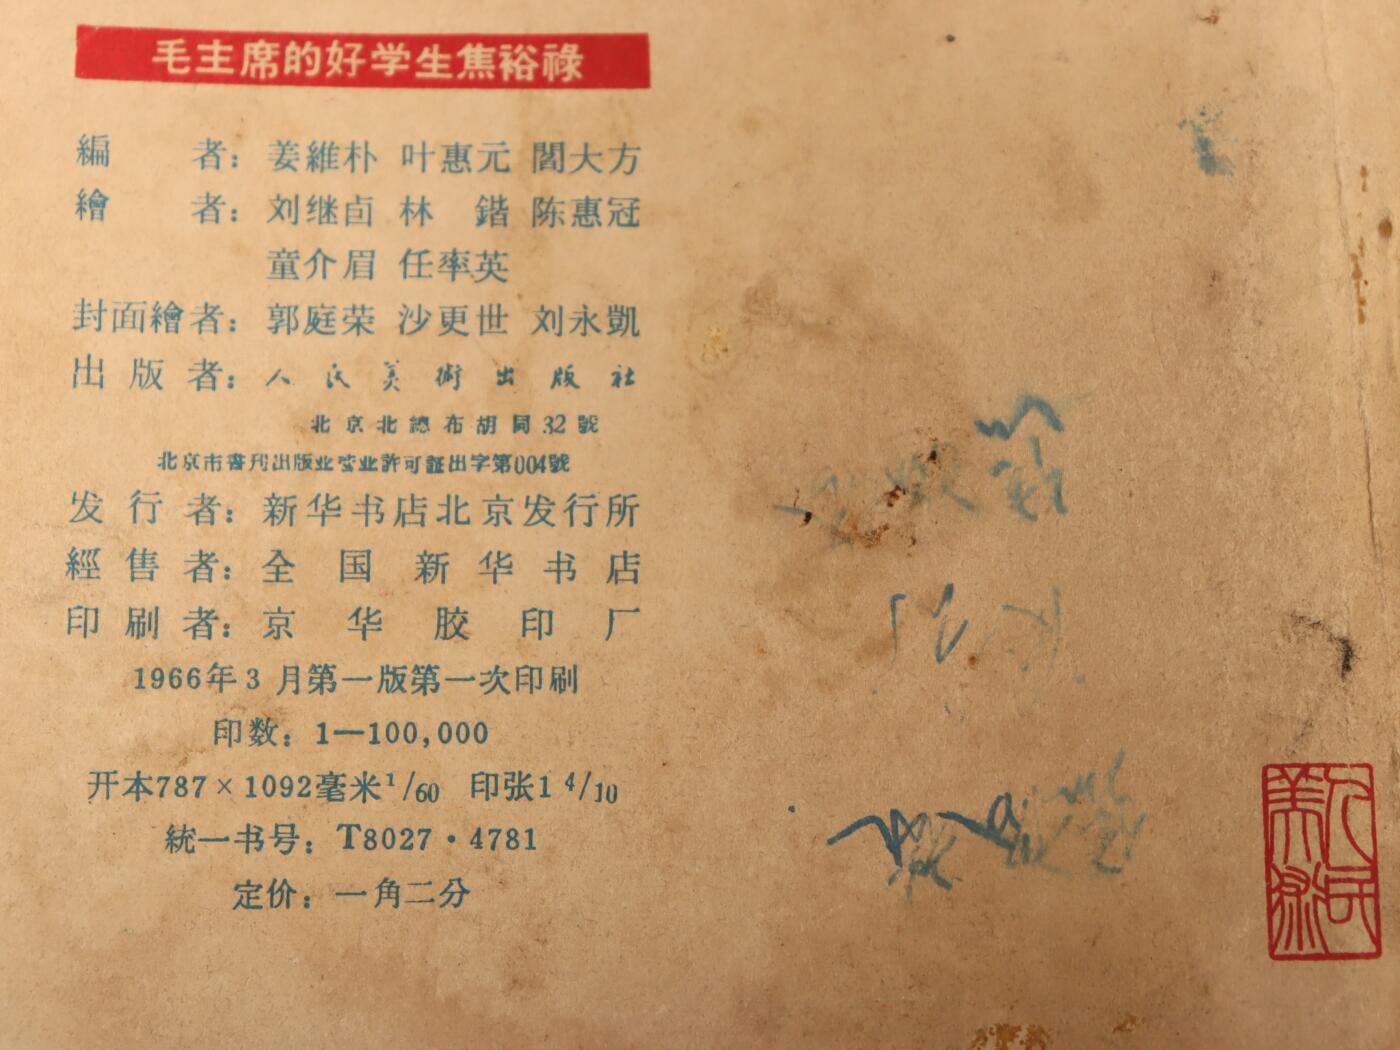 毛主席的好学生焦裕祿
編者：姜維朴 叶惠元 閻大方
繪者：刘继卣 林 鍇 陈惠冠
童介眉 任率英
封面繪者：郭庭荣 沙更世 刘永凱
出版者：人民美術出版社
北京北總布胡同32號
北京市書刊出版业营业許可証出字第004號
发行者：新华书店北京发行所
經售者：全国新华书店
印刷者：京华胶印厂
1966年3月第一版第一次印刷
印数：1—100,000
开本787×1092毫米1/60 印张1 4/10
統一书号：T8027·4781
定价：一角二分
人民美術